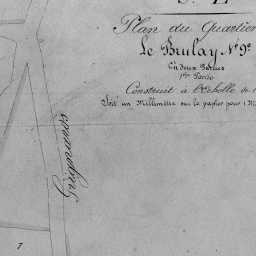 Plan du Quartier
Le Brulay N° 9e
En deux Parties
1ère Partie
Construit à l'Echelle de 1
Soit un Millimètre sur le papier pour 1 M
7